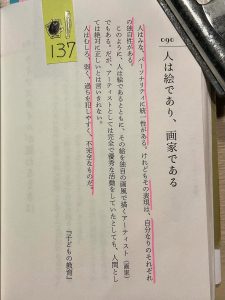 137
人は絵であり、画家である
人はみな、パーソナリティに統一性がある。けれどもその表現は、自分なりのそれぞれ
の独自性がある。
このように、人は絵であるとともに、その絵を独自の画風で描くアーティスト(画家)
でもある。だが、アーティストとしては完全で優秀な活動をしていたとしても、人間とし
ては絶対に正しいとは言いきれない。
人はむしろ、弱く、過ちを犯しやすく、不完全なものだ。
『子どもの教育』